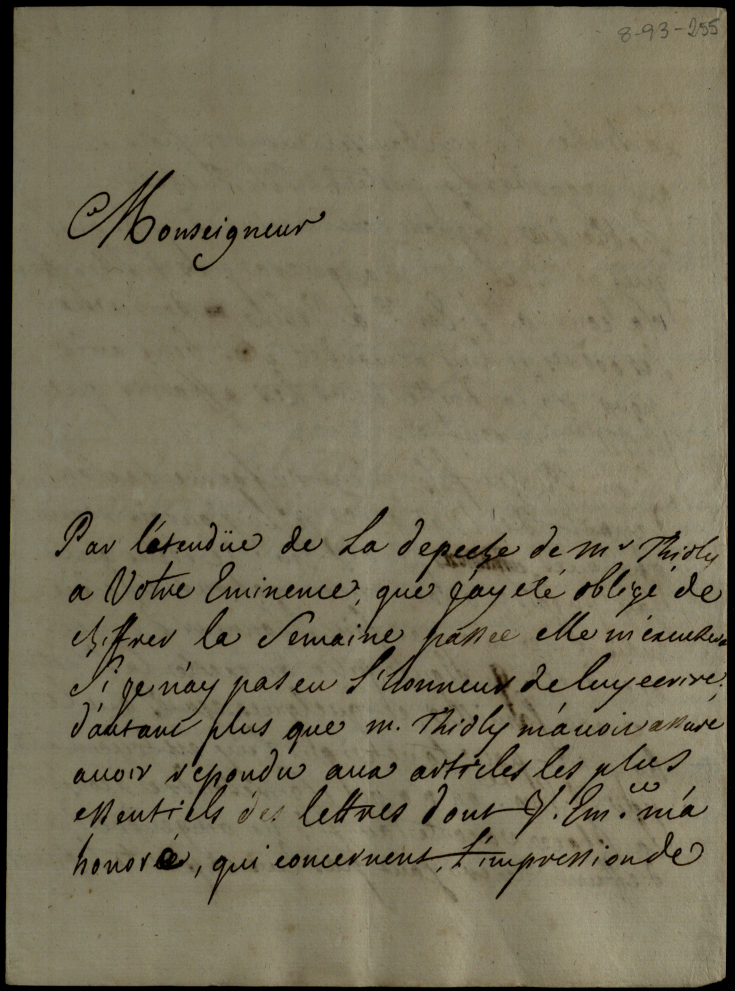 8-93-255
Monseigneur
Par létendüe de La depeche de mr Thioly
a Votre Eminence, que j'ay eté obligé de
chiffrer la Semaine passée elle m'excusera
Si je n'ay pas eu l'honneur de luy ecrire,
d'autant plus que m. Thioly m'auoit assuré
auoir repondu aux articles les plus
essentiels des lettres dont V. Em.ce m'a
honoré, qui concernent l'impression de